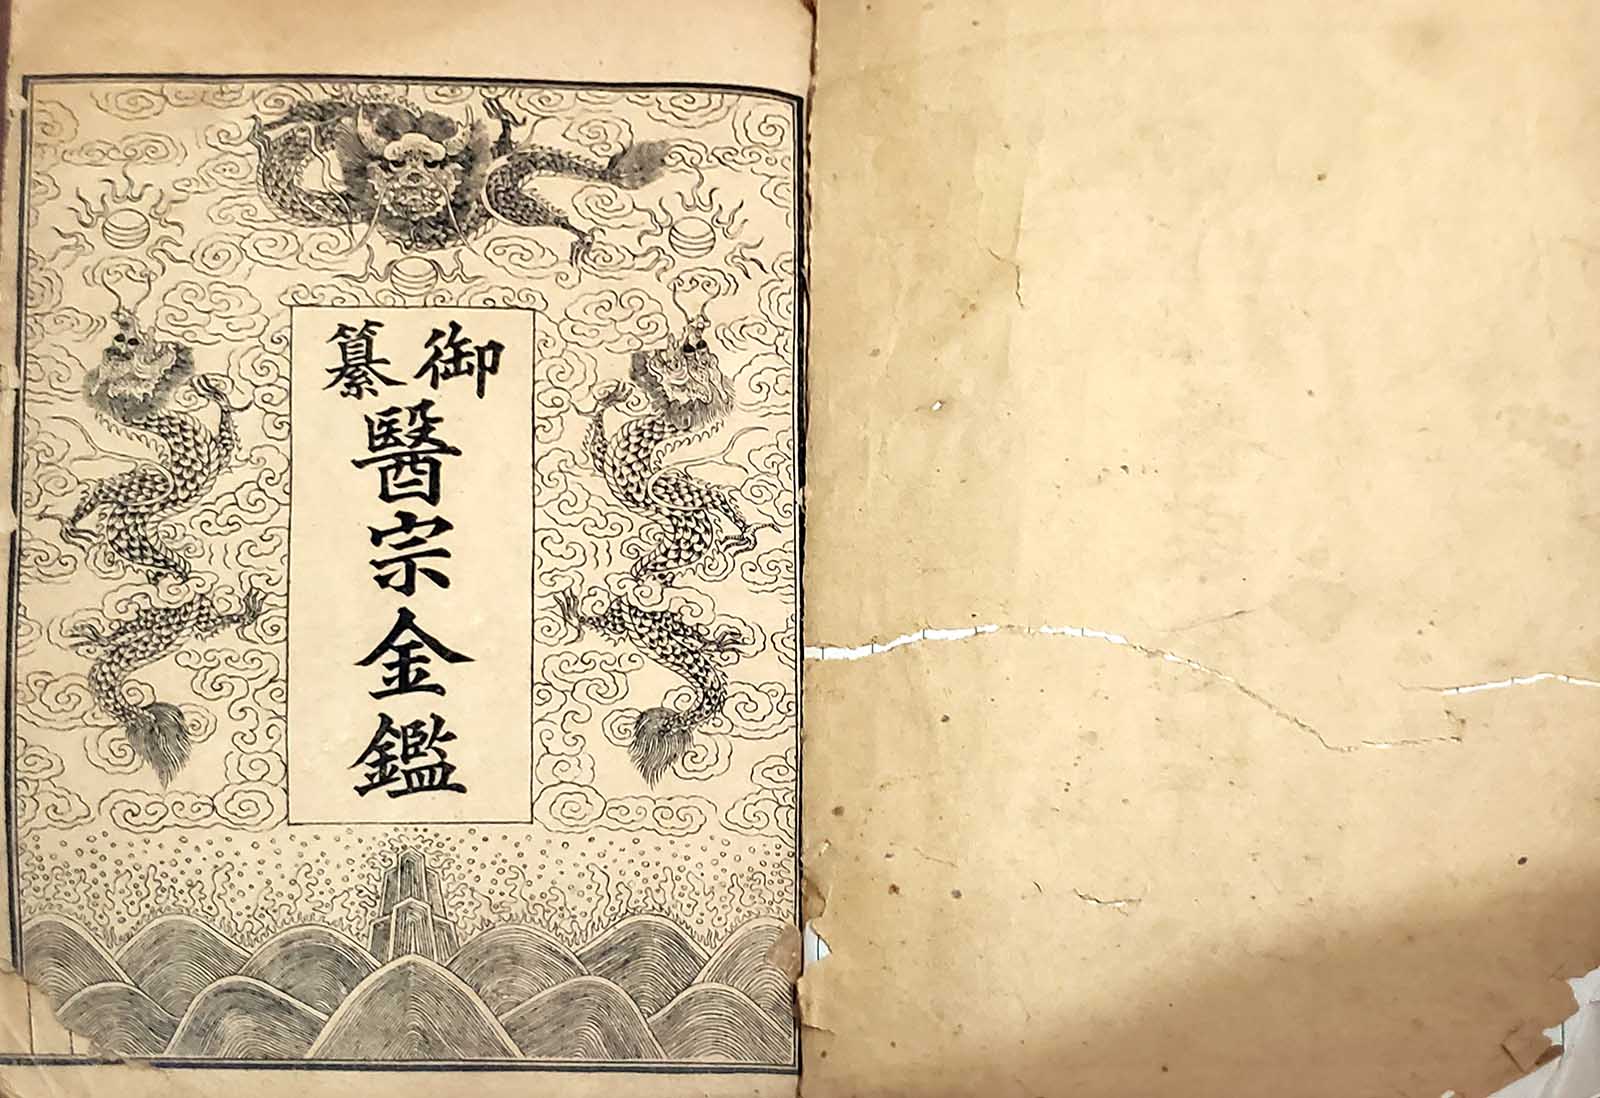 御纂
醫宗金鑑